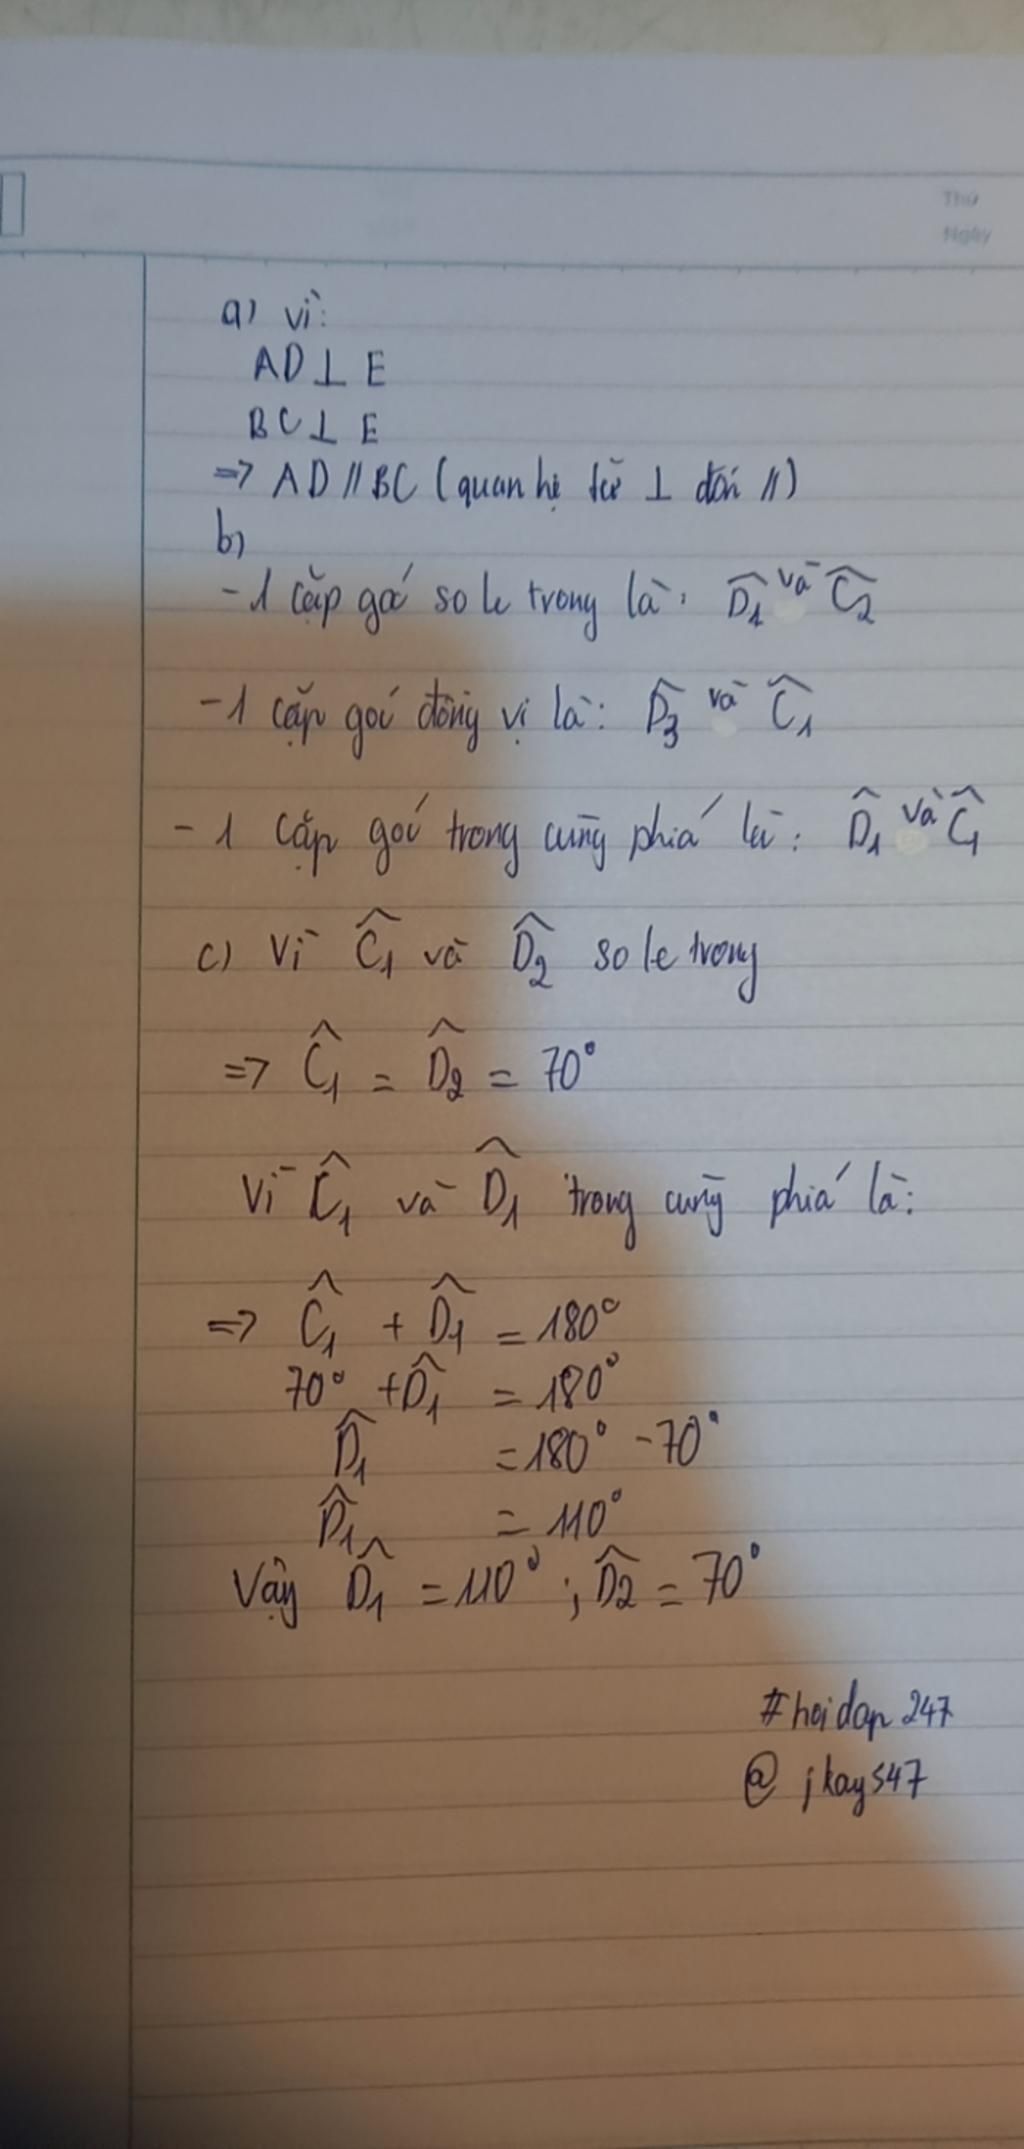 Thứ
Ngày
a) vì:
AD ⊥ E
BC ⊥ E
=> AD // BC (quan hệ từ ⊥ đến //)
b)
- 1 cặp góc so le trong là: D̂1 và Ĉ2
- 1 cặp góc đồng vị là: D̂3 và Ĉ1
- 1 cặp góc trong cùng phía là: D̂1 và Ĉ1
c) Vì Ĉ1 và D̂2 so le trong
=> Ĉ1 = D̂2 = 70°
Vì Ĉ1 và D̂1 trong cùng phía là:
=> Ĉ1 + D̂1 = 180°
70° + D̂1 = 180°
D̂1 = 180° - 70°
D̂1 = 110°
Vậy D̂1 = 110° ; D̂2 = 70°
#hoidap247
@ jkay547